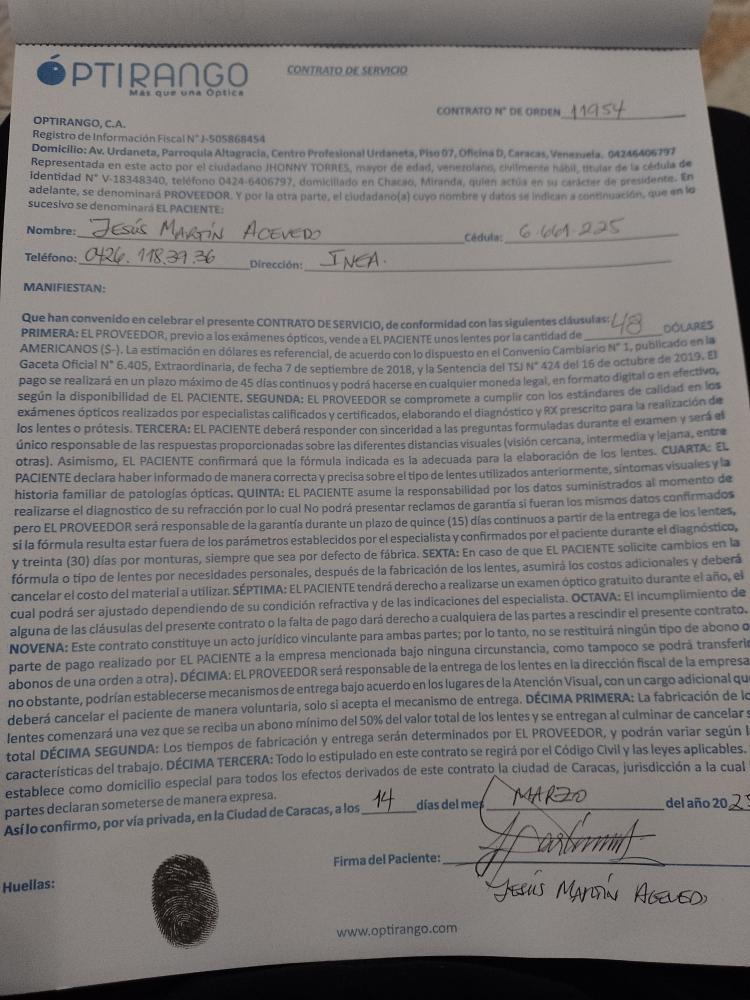 ÓPTIRANGO
Más que una Óptica
CONTRATO DE SERVICIO
CONTRATO N° DE ORDEN 11954
OPTIRANGO, C.A.
Registro de Información Fiscal N° J-505868454
Domicilio: Av. Urdaneta, Parroquia Altagracia, Centro Profesional Urdaneta, Piso 07, Oficina D, Caracas, Venezuela. 04246406797
Representada en este acto por el ciudadano JHONNY TORRES, mayor de edad, venezolano, civilmente hábil, titular de la cédula de
identidad N° V-18348340, teléfono 0424-6406797, domiciliado en Chacao, Miranda, quien actúa en su carácter de presidente. En
adelante, se denominará PROVEEDOR. Y por la otra parte, el ciudadano(a) cuyo nombre y datos se indican a continuación, que en lo
sucesivo se denominará EL PACIENTE:
Nombre: JESÚS MARTÍN ACEVEDO Cédula: 6.661.225
Teléfono: 0426.118.39.36 Dirección: INEA.
MANIFIESTAN:
Que han convenido en celebrar el presente CONTRATO DE SERVICIO, de conformidad con las siguientes cláusulas:
PRIMERA: EL PROVEEDOR, previo a los exámenes ópticos, vende a EL PACIENTE unos lentes por la cantidad de 48 DÓLARES
AMERICANOS (S-). La estimación en dólares es referencial, de acuerdo con lo dispuesto en el Convenio Cambiario N° 1, publicado en la
Gaceta Oficial N° 6.405, Extraordinaria, de fecha 7 de septiembre de 2018, y la Sentencia del TSJ N° 424 del 16 de octubre de 2019. El
pago se realizará en un plazo máximo de 45 días continuos y podrá hacerse en cualquier moneda legal, en formato digital o en efectivo,
según la disponibilidad de EL PACIENTE. SEGUNDA: EL PROVEEDOR se compromete a cumplir con los estándares de calidad en los
exámenes ópticos realizados por especialistas calificados y certificados, elaborando el diagnóstico y RX prescrito para la realización de
los lentes o prótesis. TERCERA: EL PACIENTE deberá responder con sinceridad a las preguntas formuladas durante el examen y será el
único responsable de las respuestas proporcionadas sobre las diferentes distancias visuales (visión cercana, intermedia y lejana, entre
otras). Asimismo, EL PACIENTE confirmará que la fórmula indicada es la adecuada para la elaboración de los lentes. CUARTA: EL
PACIENTE declara haber informado de manera correcta y precisa sobre el tipo de lentes utilizados anteriormente, síntomas visuales y la
historia familiar de patologías ópticas. QUINTA: EL PACIENTE asume la responsabilidad por los datos suministrados al momento de
realizarse el diagnostico de su refracción por lo cual No podrá presentar reclamos de garantía si fueran los mismos datos confirmados
pero EL PROVEEDOR será responsable de la garantía durante un plazo de quince (15) días continuos a partir de la entrega de los lentes,
si la fórmula resulta estar fuera de los parámetros establecidos por el especialista y confirmados por el paciente durante el diagnóstico,
y treinta (30) días por monturas, siempre que sea por defecto de fábrica. SEXTA: En caso de que EL PACIENTE solicite cambios en la
fórmula o tipo de lentes por necesidades personales, después de la fabricación de los lentes, asumirá los costos adicionales y deberá
cancelar el costo del material a utilizar. SÉPTIMA: EL PACIENTE tendrá derecho a realizarse un examen óptico gratuito durante el año, el
cual podrá ser ajustado dependiendo de su condición refractiva y de las indicaciones del especialista. OCTAVA: El incumplimiento de
alguna de las cláusulas del presente contrato o la falta de pago dará derecho a cualquiera de las partes a rescindir el presente contrato.
NOVENA: Este contrato constituye un acto jurídico vinculante para ambas partes; por lo tanto, no se restituirá ningún tipo de abono o
parte de pago realizado por EL PACIENTE a la empresa mencionada bajo ninguna circunstancia, como tampoco se podrá transferi
abonos de una orden a otra). DÉCIMA: EL PROVEEDOR será responsable de la entrega de los lentes en la dirección fiscal de la empresa
no obstante, podrían establecerse mecanismos de entrega bajo acuerdo en los lugares de la Atención Visual, con un cargo adicional qu
deberá cancelar el paciente de manera voluntaria, solo si acepta el mecanismo de entrega. DÉCIMA PRIMERA: La fabricación de lo
lentes comenzará una vez que se reciba un abono mínimo del 50% del valor total de los lentes y se entregan al culminar de cancelar s
total DÉCIMA SEGUNDA: Los tiempos de fabricación y entrega serán determinados por EL PROVEEDOR, y podrán variar según l
características del trabajo. DÉCIMA TERCERA: Todo lo estipulado en este contrato se regirá por el Código Civil y las leyes aplicables.
establece como domicilio especial para todos los efectos derivados de este contrato la ciudad de Caracas, jurisdicción a la cual
partes declaran someterse de manera expresa.
Así lo confirmo, por vía privada, en la Ciudad de Caracas, a los 14 días del mes MARZO del año 2025
Firma del Paciente:
JESÚS MARTÍN ACEVEDO
Huellas:
www.optirango.com